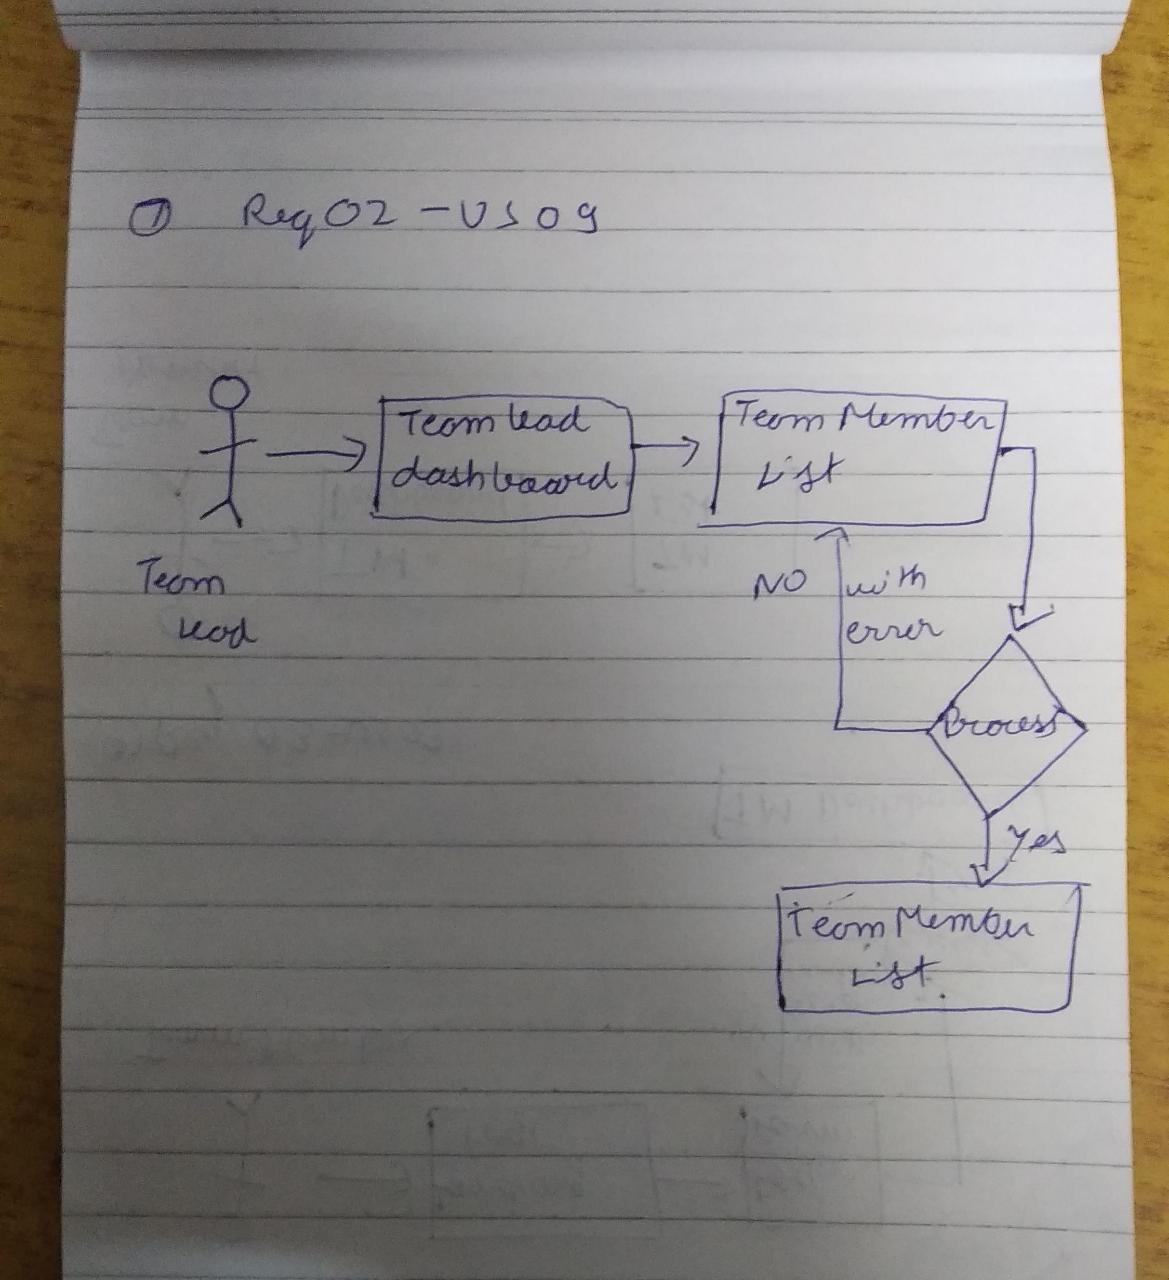 ① Req02-US09
Team lead
dashboard
Team Member
List
Team
lead
NO
with
error
Process
Yes
Team Member
List.